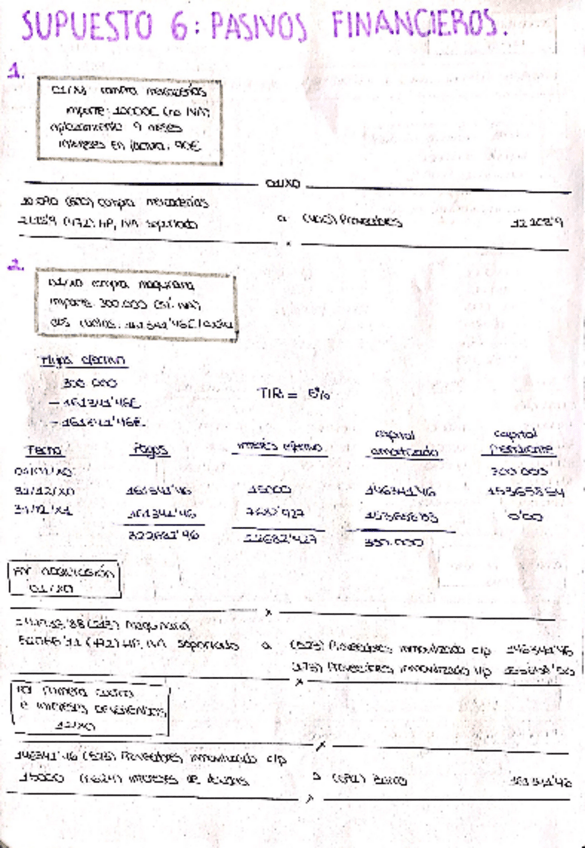 SUPUESTO 6: PASIVOS FINANCIEROS.
1.
01/X0 compra mercaderías
importe: 10000€ (no IVA)
aplazamiento 9 meses
intereses en factura: 90€
01/X0
10.090 (600) compra mercaderías
(472) HP, IVA soportado a (400) Proveedores
2.
01/X0 compra maquinaria
importe: 300.000 (sí IVA)
dos cuotas: 161341'46€/cuota
Flujos efectivo
300 000
- 161341'46€
- 161341'46€
TIR = 5%
Fecha Pagos interés efectivo capital amortizado capital pendiente
01/01/X0 300 000
31/12/X0 161341'46 15000 146341'46 153658'54
31/12/X1 161341'46 0'00
por adquisición
01/X0
(213) maquinaria
(472) HP, IVA soportado a (523) Proveedores inmovilizado c/p 146341'46
(173) Proveedores inmovilizado l/p
por primera cuota
e intereses devengados
12/X0
146341'46 (523) Proveedores inmovilizado c/p
15000 intereses de deudas a Banco 161341'46